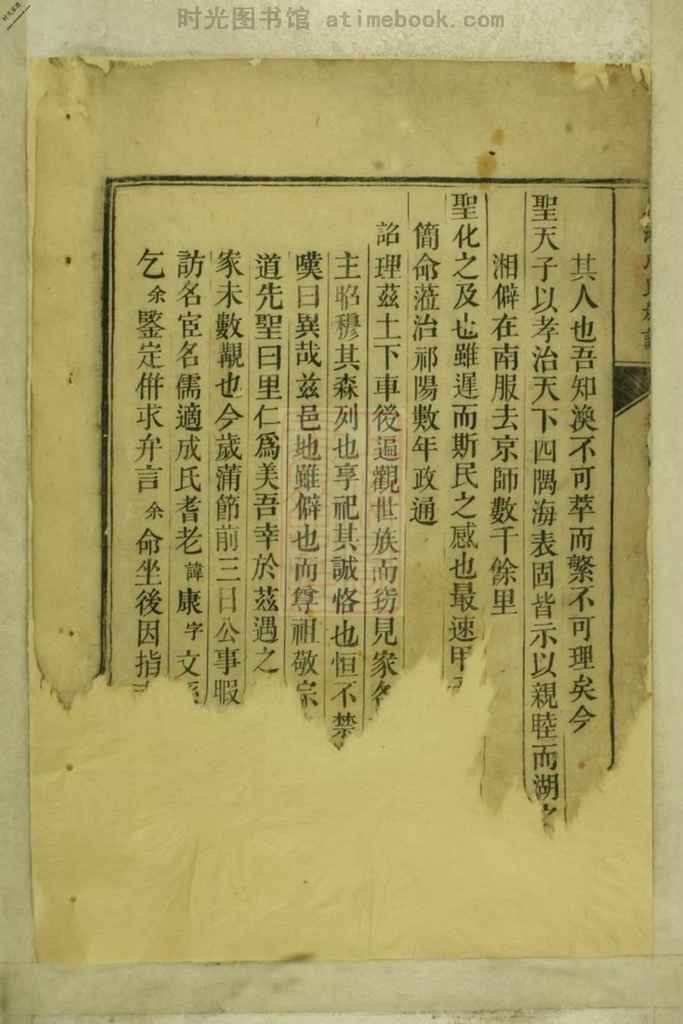 时光图书馆 atimebook.com
其人也吾知渙不可萃而繫不可理矣今
聖天子以孝治天下四隅海表固皆示以親睦而湖之
湘僻在南服去京師數千餘里
聖化之及也雖遲而斯民之感也最速甲
簡命蒞治祁陽數年政通
詔理茲土下車後遍觀世族而窃見家各
主昭穆其森列也享祀其誠恪也恒不禁
嘆曰異哉茲邑地雖僻也而尊祖敬宗
道先聖曰里仁爲美吾幸於茲遇之
家未數覯也今歲蒲節前三日公事暇
訪名宦名儒適成氏耆老諱康字文
乞余鑒定倂求弁言余命坐後因指